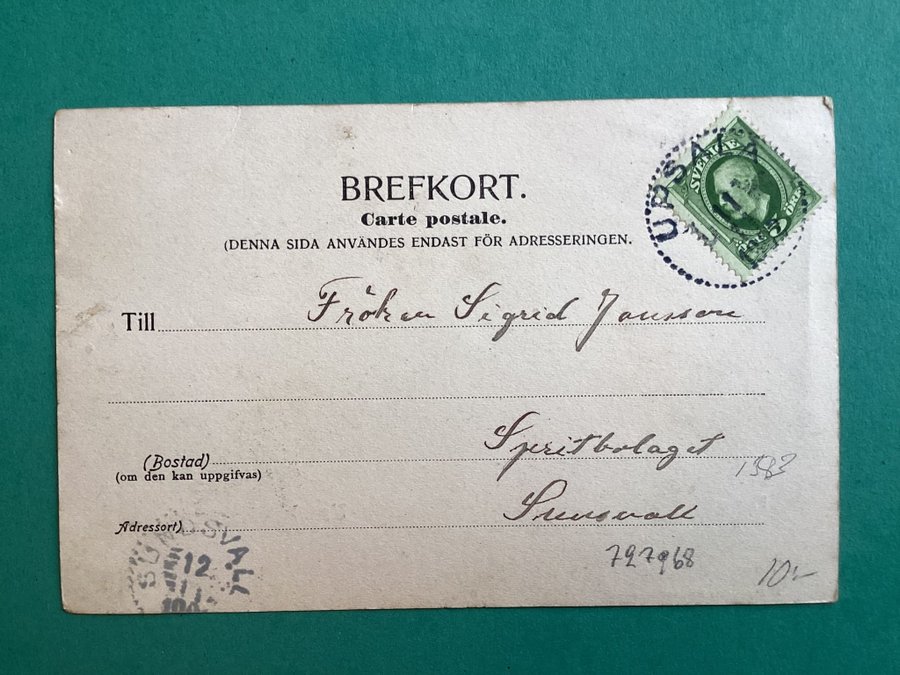 BREFKORT.
Carte postale.
(DENNA SIDA ANVÄNDES ENDAST FÖR ADRESSERINGEN.
UPSALA
11
SVERIGE
5
Till Fröken Sigrid Jansson
Spritbolaget
(Bostad)
(om den kan uppgifvas)
1583
Adressort) Sunsvall
SUNDSVALL
12
1
727968
10-